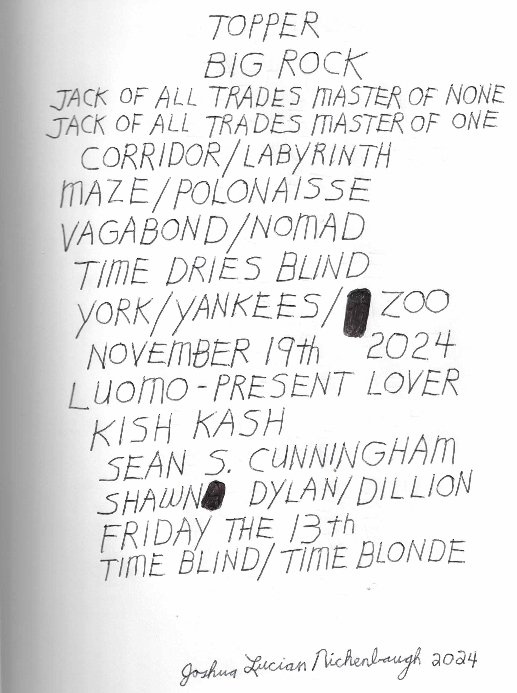 TOPPER
BIG ROCK
JACK OF ALL TRADES MASTER OF NONE
JACK OF ALL TRADES MASTER OF ONE
CORRIDOR/LABYRINTH
MAZE/POLONAISSE
VAGABOND/NOMAD
TIME DRIES BLIND
YORK/YANKEES/ ZOO
NOVEMBER 19th 2024
LUOMO-PRESENT LOVER
KISH KASH
SEAN S. CUNNINGHAM
SHAWN DYLAN/DILLION
FRIDAY THE 13th
TIME BLIND/TIME BLONDE
Joshua Lucian Nichenbaugh 2024